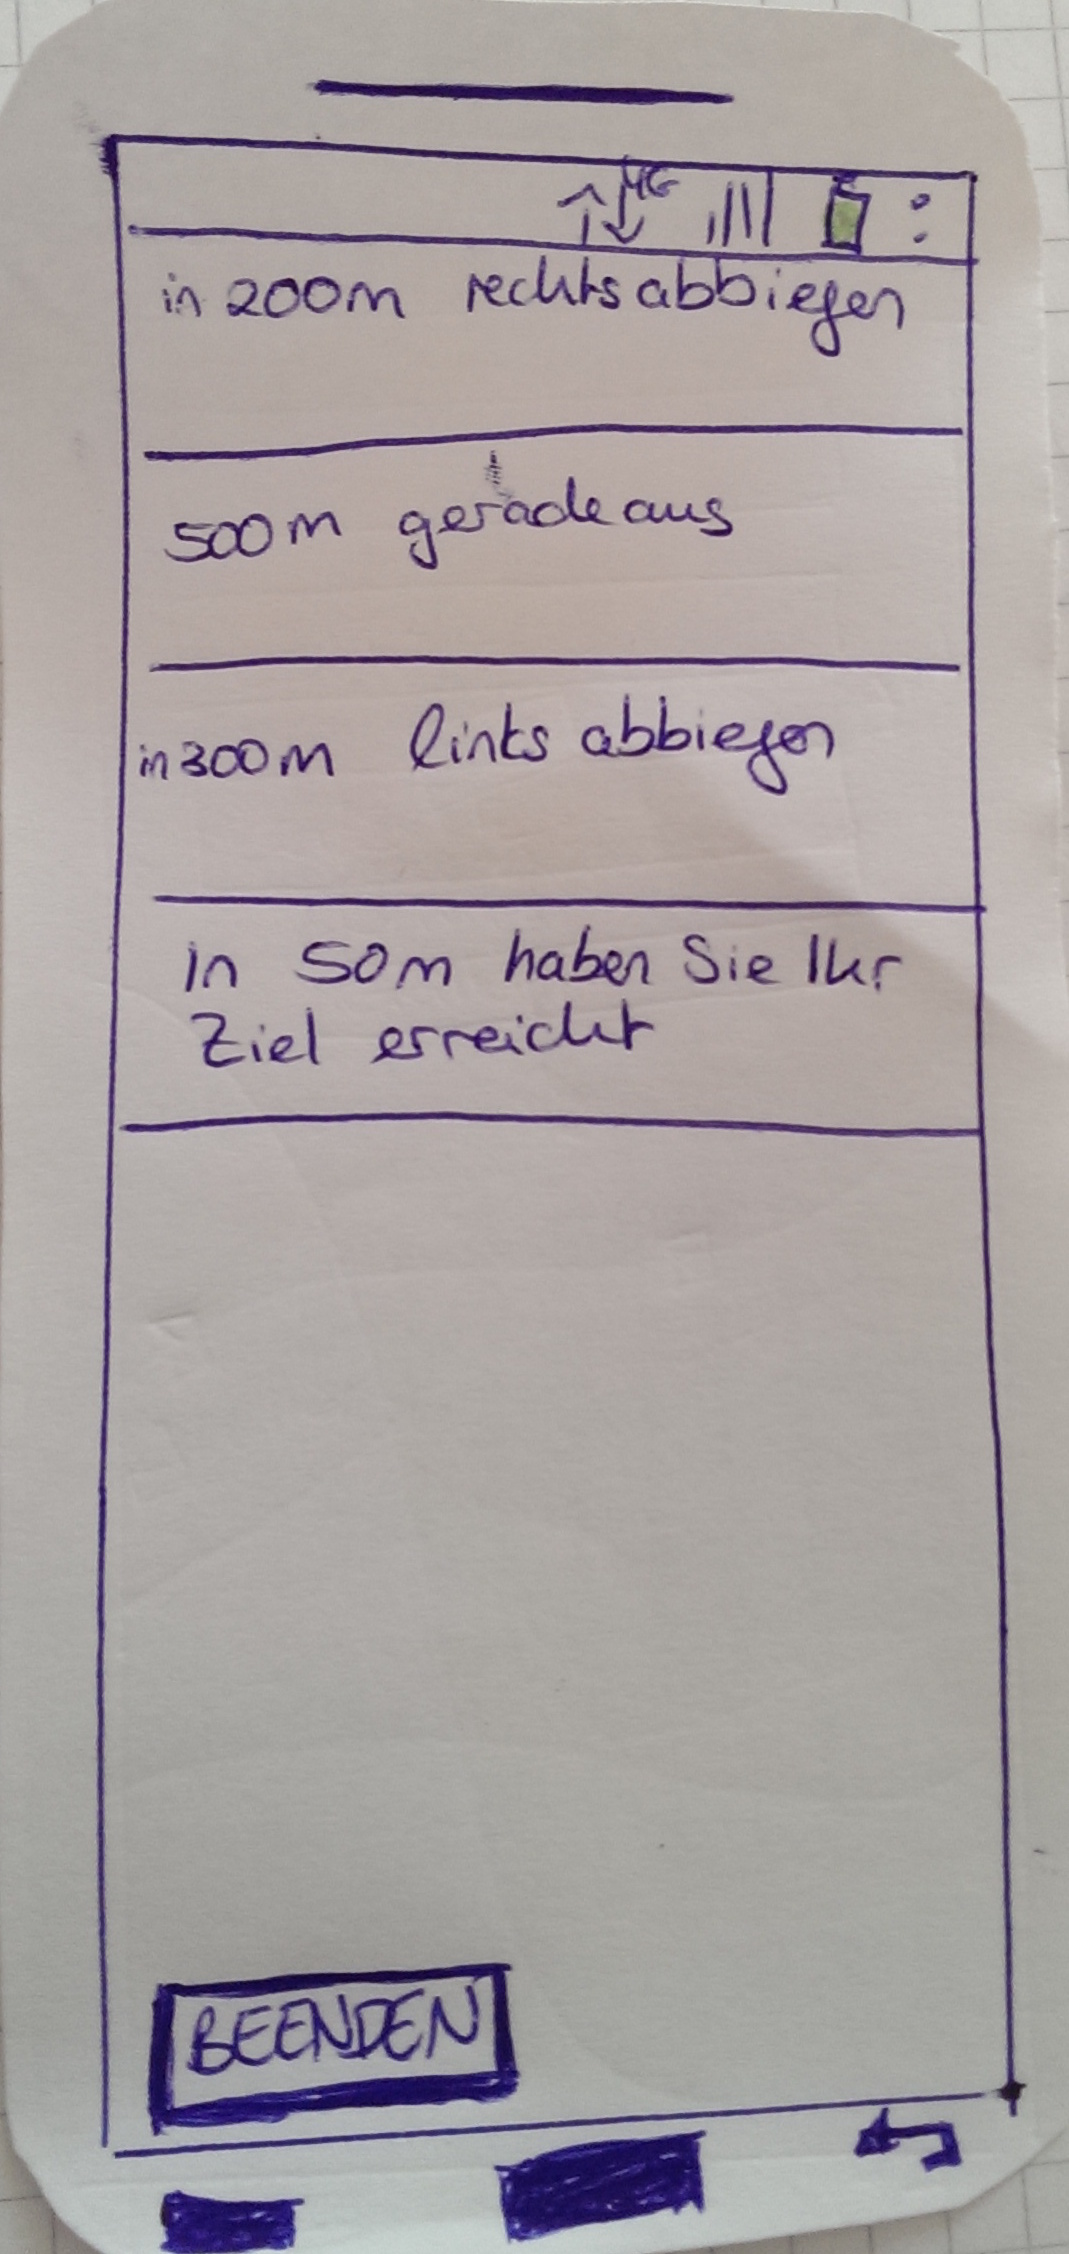 4G
in 200m rechts abbiegen
500m geradeaus
in 300m links abbiegen
In 50m haben Sie Ihr
Ziel erreicht
BEENDEN